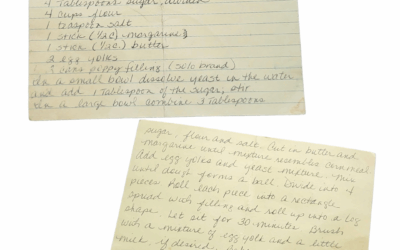 4 Tablespoons sugar, divided
4 cups flour
1 teaspoon salt
1 stick (1/2c.) margarine
1 stick (1/2c.) butter
2 egg yolks
3 cans poppy filling (Solo brand)
In a small bowl dissolve yeast in the water
and add 1 Tablespoon of the sugar, stir
In a large bowl combine 3 Tablespoons
sugar, flour and salt. Cut in butter and
margarine until mixture resembles cornmeal
add egg yolks and yeast mixture. Mix
until dough forms a ball. Divide into 4
pieces. Roll each piece into a rectangle
spread with filling and roll up into a log
shape. Let sit for 30 minutes. Brush
with a mixture of egg yolk and a little
milk, if desired.